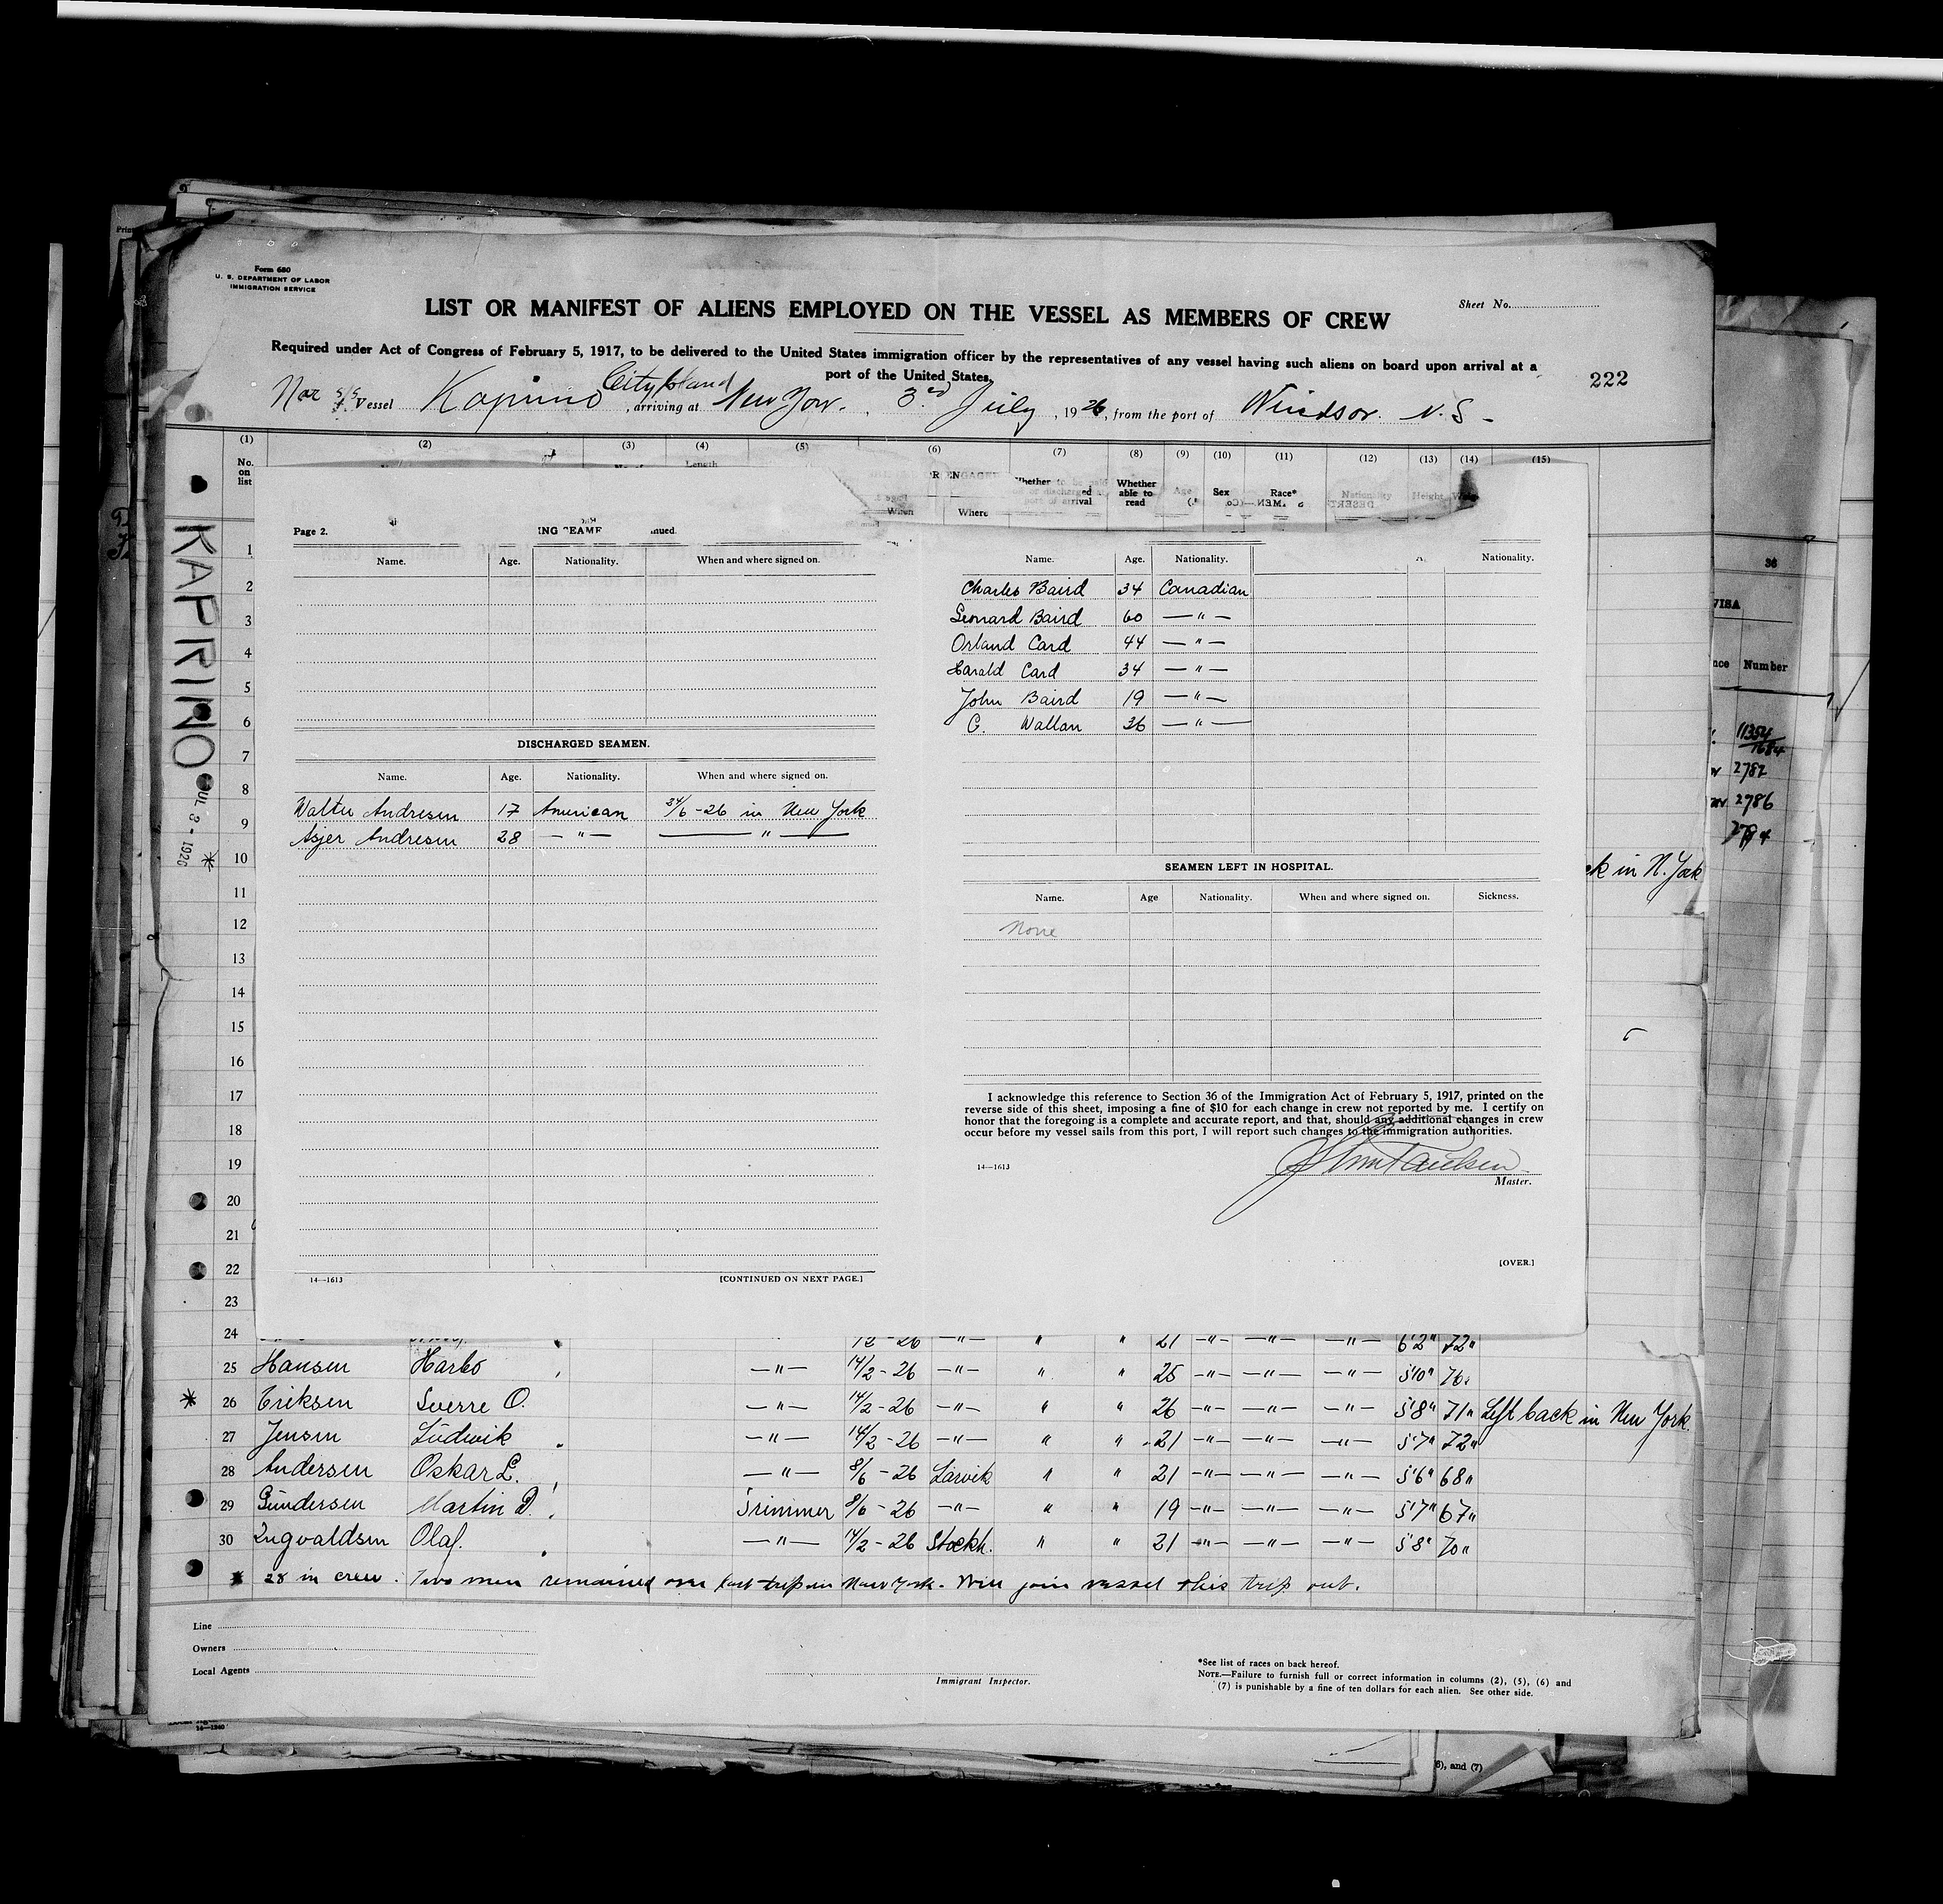 Form 680
U. S. DEPARTMENT OF LABOR
IMMIGRATION SERVICE
Sheet No.
LIST OR MANIFEST OF ALIENS EMPLOYED ON THE VESSEL AS MEMBERS OF CREW
Required under Act of Congress of February 5, 1917, to be delivered to the United States immigration officer by the representatives of any vessel having such aliens on board upon arrival at a
port of the United States.
222
City Island
Nor s/s Vessel Kaprino, arriving at New Yor., 3rd July, 1926, from the port of Windsor. N. S -
(1) (2) (3) (4) (5) (6) (7) (8) (9) (10) (11) (12) (13) (14) (15)
No. on list
Length
When Where
Whether able to read
Age Sex Race* Nationality Height
KAPRINO
UL 3 - 1926
Page 2.
Name. Age. Nationality. When and where signed on.
DISCHARGED SEAMEN.
Name. Age. Nationality. When and where signed on.
Walter Andresen 17 American 24/6 - 26 in New York
Asjer Andresen 28 — " — — " —
14—1613 [CONTINUED ON NEXT PAGE.]
Name. Age. Nationality. Nationality.
Charles Baird 34 Canadian
Leonard Baird 60 — " —
Orland Card 44 — " —
Harald Card 34 — " —
John Baird 19 — " —
C. Wallan 36 — " —
SEAMEN LEFT IN HOSPITAL.
Name. Age Nationality. When and where signed on. Sickness.
None
I acknowledge this reference to Section 36 of the Immigration Act of February 5, 1917, printed on the
reverse side of this sheet, imposing a fine of $10 for each change in crew not reported by me. I certify on
honor that the foregoing is a complete and accurate report, and that, should any additional changes in crew
occur before my vessel sails from this port, I will report such changes to the immigration authorities.
14—1613
Master.
[OVER.]
1
2
3
4
5
6
7
8
9
10
11
12
13
14
15
16
17
18
19
20
21
22
23
24 12 - 26 — " — " " 21 — " — — " — — " — 6'2" 72"
25 Hansen Harbo — " — 14/2 - 26 — " — " " 25 — " — — " — — " — 5'10" 76"
* 26 Eriksen Sverre O. — " — 14/2 - 26 — " — " " 26 — " — — " — — " — 5'8" 71" Left back in New York.
27 Jensen Ludwik — " — 14/2 - 26 — " — " " 21 — " — — " — — " — 5'7" 72"
28 Andersen Oskar L. — " — 8/6 - 26 Larvik " " 21 — " — — " — — " — 5'6" 68"
29 Gundersen Martin D. Trimmer 8/6 - 26 — " — " " 19 — " — — " — — " — 5'7" 67"
30 Ingvaldsen Olaf. — " — 14/2 - 26 Stockh. " " 21 — " — — " — — " — 5'8" 70"
* 28 in crew. Two men remained over last trip in New York. Will join vessel this trip out.
ck in N. York
Line
Owners
Local Agents
Immigrant Inspector.
*See list of races on back hereof.
NOTE.—Failure to furnish full or correct information in columns (2), (5), (6) and
(7) is punishable by a fine of ten dollars for each alien. See other side.
36
VISA
Number
2782
2786
2784
6), and (7)